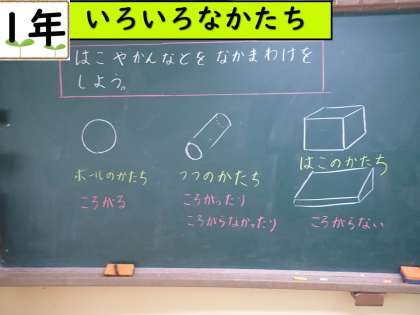 1年
いろいろなかたち
はこやかんなどをなかまわけを
しよう。
ボールのかたち
ころがる
つつのかたち
ころがったり
ころがらなかったり
はこのかたち
ころがらない